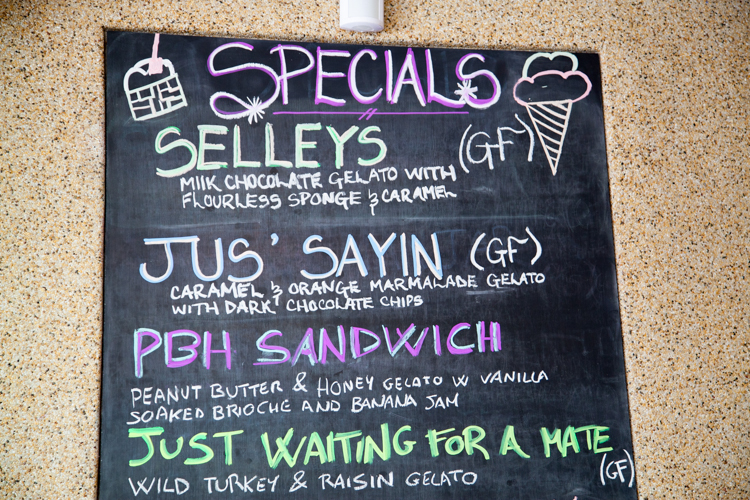 SPECIALS
SELLEYS (GF)
MILK CHOCOLATE GELATO WITH
FLOURLESS SPONGE & CARAMEL
JUS' SAYIN (GF)
CARAMEL & ORANGE MARMALADE GELATO
WITH DARK CHOCOLATE CHIPS
PBH SANDWICH
PEANUT BUTTER & HONEY GELATO W VANILLA
SOAKED BRIOCHE AND BANANA JAM
JUST WAITING FOR A MATE
(GF)
WILD TURKEY & RAISIN GELATO